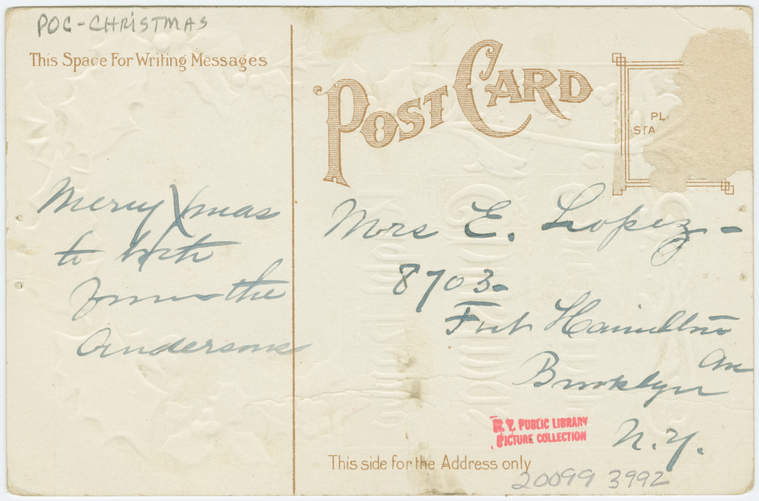 POC-CHRISTMAS
This Space For Writing Messages
POST CARD
PL
STA
Merry Xmas
to both
from the
Andersons
Mrs E. Lopez -
8703 -
Fort Hamilton
Ave
Brooklyn
N.Y.
N.Y. PUBLIC LIBRARY
PICTURE COLLECTION
This side for the Address only
20099 3992